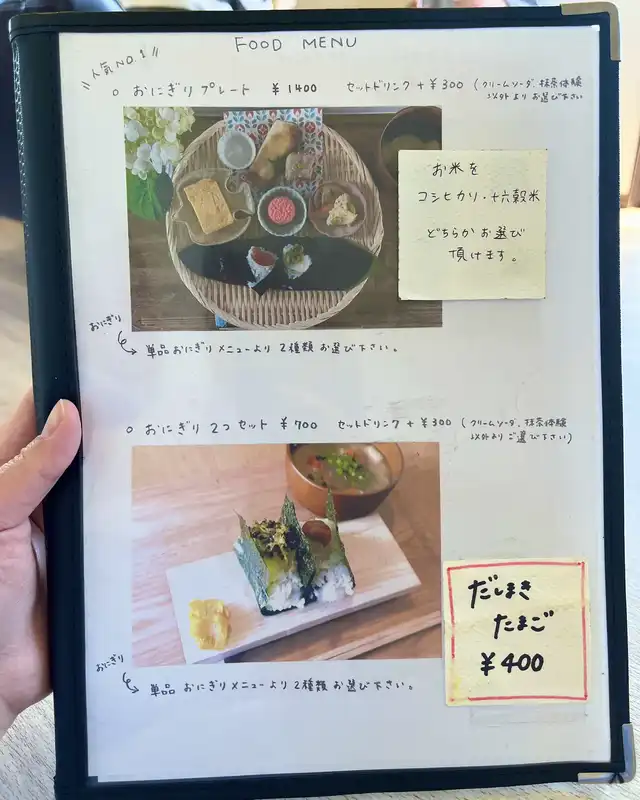 FOOD MENU
"人気NO.1"
○ おにぎりプレート ¥1400 セットドリンク+¥300 (クリームソーダ、抹茶体験
以外よりお選び下さい
お米を
コシヒカリ・十六穀米
どちらかお選び
頂けます。
おにぎり
単品おにぎりメニューより2種類お選び下さい。
○ おにぎり 2つセット ¥700 セットドリンク+¥300 (クリームソーダ、抹茶体験
以外よりご選び下さい)
だしまき
たまご
¥400
おにぎり
単品おにぎりメニューより2種類お選び下さい。